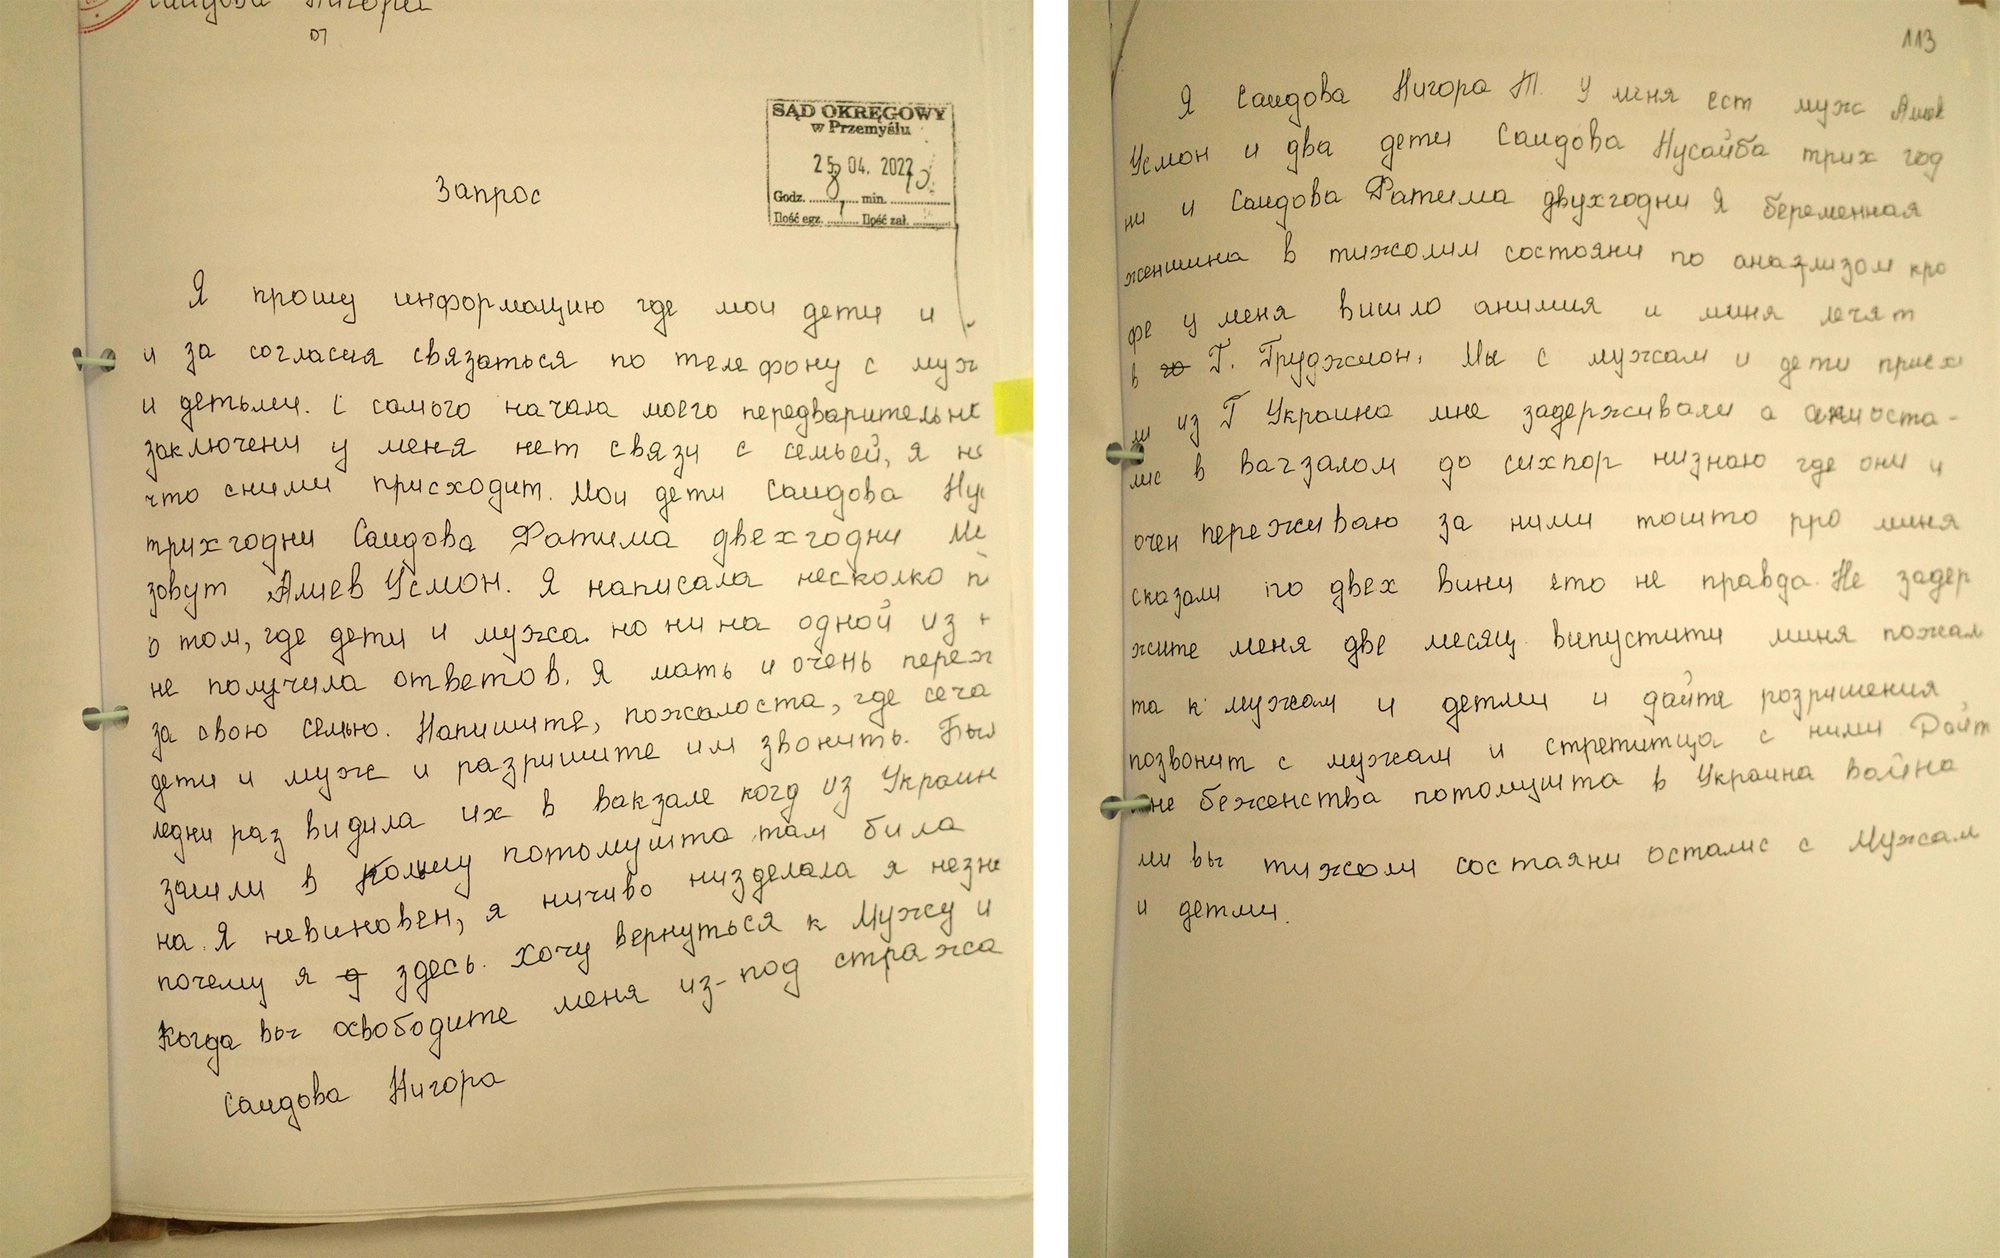 Саидова Нигора
SĄD OKRĘGOWY
w Przemyślu
25 04. 2022
Godz. 8 min. 10
Ilość egz. 1 Ilość zał.
Запрос
Я прошу информацию где мои дети и
и за согласия связаться по телефону с муж
и детьми. С самого начала моего передварительно
заключени у меня нет связи с семьей, я не
что сними присходит. Мои дети Саидова Нус
трихгодни Саидова Фатима двехгодни
зовут Алиев Усмон. Я написала несколко п
о том, где дети и мужа. но ни на одной из
не получила ответов. Я мать и очень переж
за свою семью. Напишите, пожалоста, где сеча
дети и муж и разришите им звонить.
ледни раз видила их в вакзале когд из Украин
зашли в Полшу потомушта там била
на. Я невиновен, я ничиво низделала я незна
почему я здесь. хочу вернуться к Мужу и
Когда вы освободите меня из-под стража
Саидова Нигора
113
Я Саидова Нигора Т. У меня ест муж Алиев
Усмон и два дети Саидова Нусайба трих год
ни и Саидова Фатима двухгодни Я беременная
женшина в тижолим состояни по анализом кро
фе у меня вишло анимия и миня лечят
в Г. Груджион. Мы с мужам и дети приех
ли из Г Украина мне задерживали а они оста-
лис в вагзалом до сихпор низнаю где они и
очен переживаю за ними тошто про миня
сказали по двех вини ето не правда. Не задер
жите меня две месяц випустити миня пожал
та к мужам и детми и дайте розришения
позвонит с мужам и стретитца с ними Дайт
мне беженства потомушта в Украина война
ми вы тижоли состаяни осталис с Мужам
и детми.